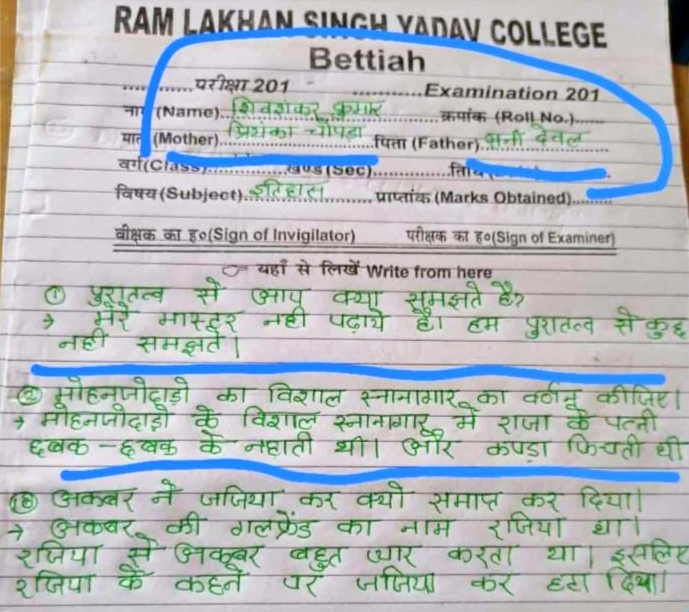 RAM LAKHAN SINGH YADAV COLLEGE
Bettiah
............परीक्षा 201 - ............Examination 201
नाम (Name)..शिवशंकर कुमार क्रमांक (Roll No.)......
माता (Mother) प्रियंका चोपड़ा पिता (Father) सनी देवल
वर्ग(Class)............खण्ड(Sec)............तिथि
विषय(Subject).इतिहास.......... प्राप्तांक (Marks Obtained)........
वीक्षक का ह०(Sign of Invigilator) परीक्षक का ह०(Sign of Examiner)
☞ यहाँ से लिखें Write from here
① पुरातत्व से आप क्या समझते है?
→ मेरे मास्टर नही पढ़ाये है। हम पुरातत्व से कुछ
नही समझते।
② मोहनजोदाड़ो का विशाल स्नानागार का वर्णन कीजिए।
→ मोहनजोदाड़ो के विशाल स्नानागार में राजा के पत्नी
छबक - छबक के नहाती थी। और कपड़ा फिचती थी
⑱ अकबर ने जजिया कर क्यों समाप्त कर दिया।
→ अकबर की गलफ्रेंड का नाम रजिया था।
रजिया से अकबर बहुत प्यार करता था। इसलिए
रजिया के कहने पर जजिया कर हटा दिया।